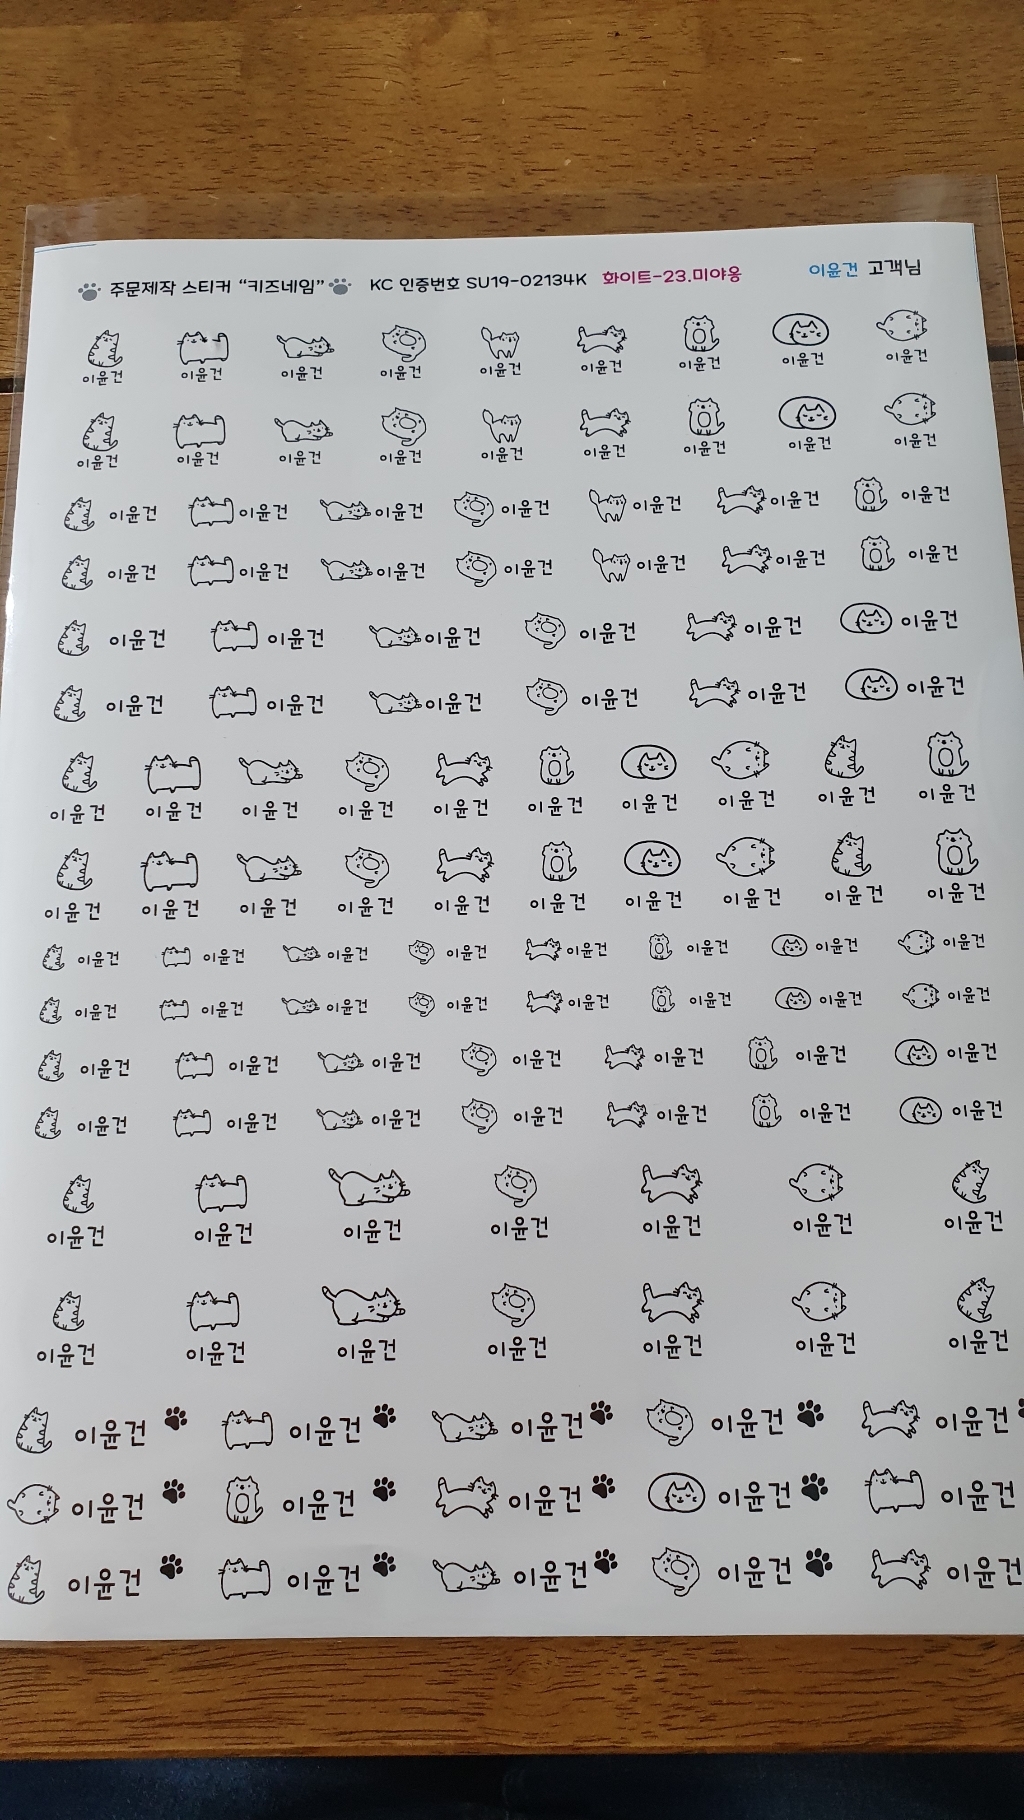 주문제작 스티커 “키즈네임” KC 인증번호 SU19-02134K 화이트-23.미야옹 이윤건 고객님
이윤건 이윤건 이윤건 이윤건 이윤건 이윤건 이윤건 이윤건 이윤건
이윤건 이윤건 이윤건 이윤건 이윤건 이윤건 이윤건 이윤건 이윤건
이윤건 이윤건 이윤건 이윤건 이윤건 이윤건 이윤건
이윤건 이윤건 이윤건 이윤건 이윤건 이윤건 이윤건
이윤건 이윤건 이윤건 이윤건 이윤건 이윤건
이윤건 이윤건 이윤건 이윤건 이윤건 이윤건
이윤건 이윤건 이윤건 이윤건 이윤건 이윤건 이윤건 이윤건 이윤건 이윤건
이윤건 이윤건 이윤건 이윤건 이윤건 이윤건 이윤건 이윤건 이윤건 이윤건
이윤건 이윤건 이윤건 이윤건 이윤건 이윤건 이윤건 이윤건
이윤건 이윤건 이윤건 이윤건 이윤건 이윤건 이윤건 이윤건
이윤건 이윤건 이윤건 이윤건 이윤건 이윤건 이윤건
이윤건 이윤건 이윤건 이윤건 이윤건 이윤건 이윤건
이윤건 이윤건 이윤건 이윤건 이윤건 이윤건 이윤건
이윤건 이윤건 이윤건 이윤건 이윤건 이윤건 이윤건
이윤건 이윤건 이윤건 이윤건 이윤건
이윤건 이윤건 이윤건 이윤건 이윤건
이윤건 이윤건 이윤건 이윤건 이윤건